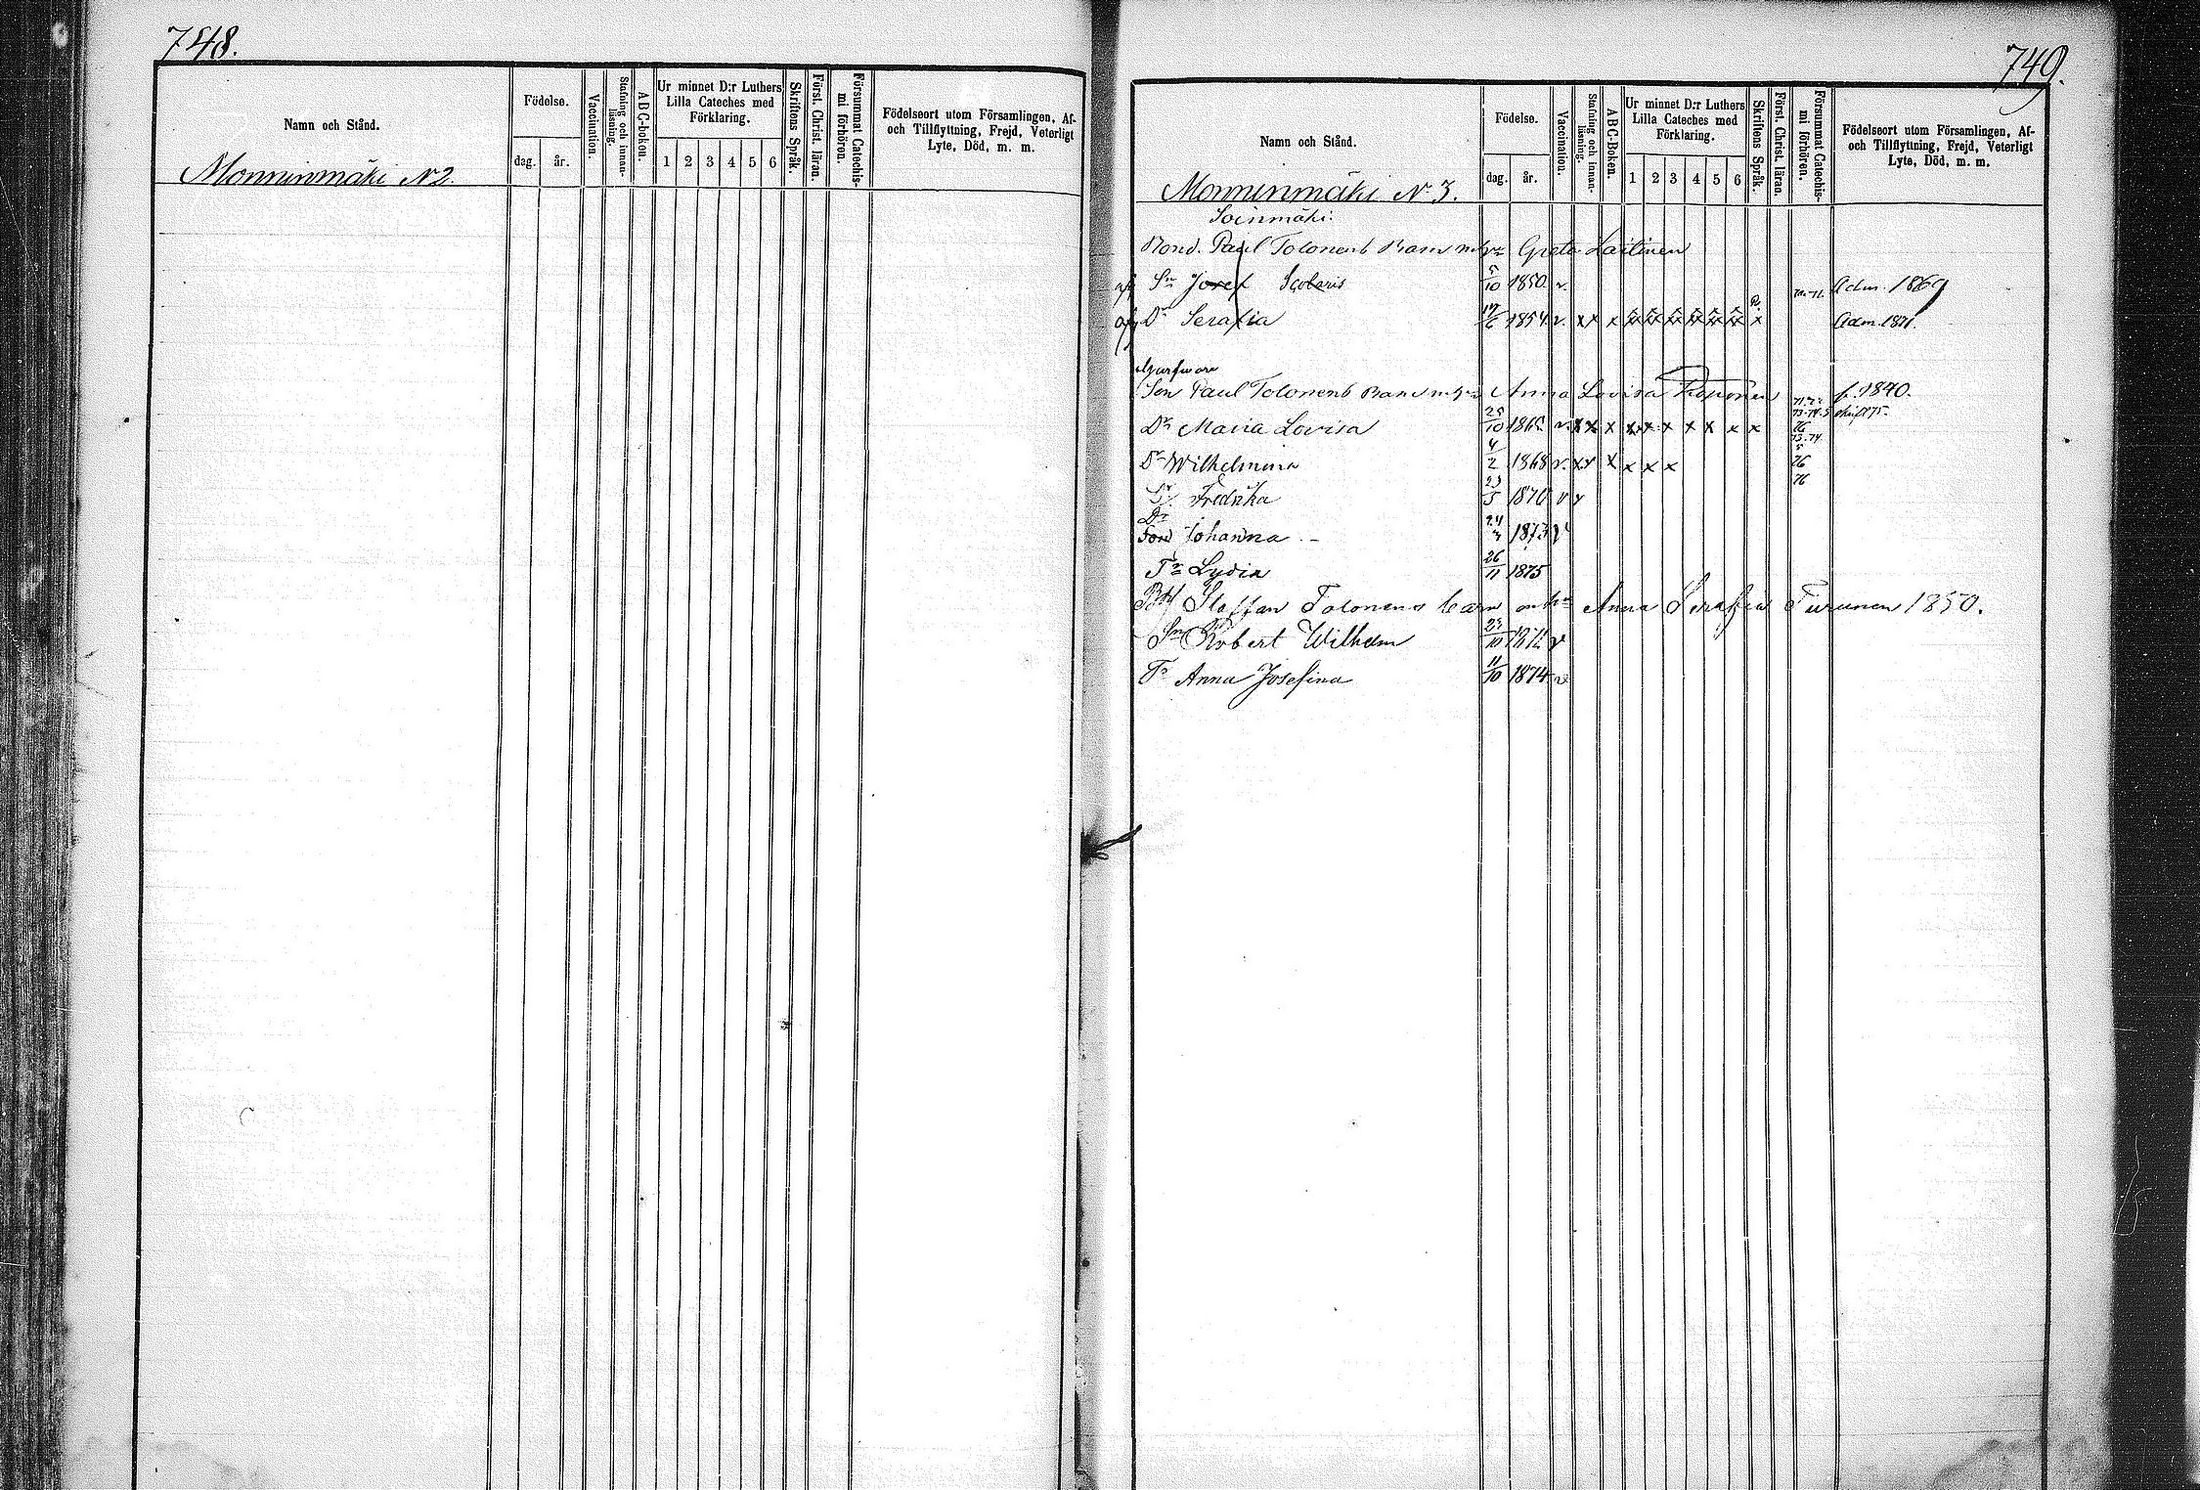 748.
Namn och Stånd.
Födelse.
dag. år.
Vaccination.
Stafning och innan-
läsning.
A B C-boken.
Ur minnet D:r Luthers
Lilla Cateches med
Förklaring.
1 2 3 4 5 6
Skriftens Språk.
Först. Christ. läran.
Försummat Catechis-
mi förhören.
Födelseort utom Församlingen, Af-
och Tillflyttning, Frejd, Veterligt
Lyte, Död, m. m.
Monninmäki N 2.
749.
Namn och Stånd.
Födelse.
dag. år.
Vaccination.
Stafning och innan-
läsning.
A B C-Boken.
Ur minnet D:r Luthers
Lilla Cateches med
Förklaring.
1 2 3 4 5 6
Skriftens Språk.
Först. Christ. läran.
Försummat Catechis-
mi förhören.
Födelseort utom Församlingen, Af-
och Tillflyttning, Frejd, Veterligt
Lyte, Död, m. m.
Monninmäki N 3.
Soinmäki.
Bond. Paul Tolonens Barn m. Greta Laitinen
Sn Josef 5/10 1850. v. 70-71. Adm. 1869
Dr Serafia 17/6 1854 v. x x x x x x x x x x Adm. 1871.
Son Paul Tolonens Barn m. Anna Lovisa f. 1840.
Dr Maria Lovisa 25/10 1865 v. x x x x x x x x x x 76
Dr Wilhelmina 4/2 1868 v. x x x x x x 73-74 76
Fredrika 23/5 1870 v v 76
Dr Johanna 24/3 1873 v
Tr Lydia 26/11 1875
Staffan Tolonens barn m. Anna Serafia Turunen 1850.
Sn Robert Wilhelm 23/10 v
Tr Anna Josefina 11/10 1874 v